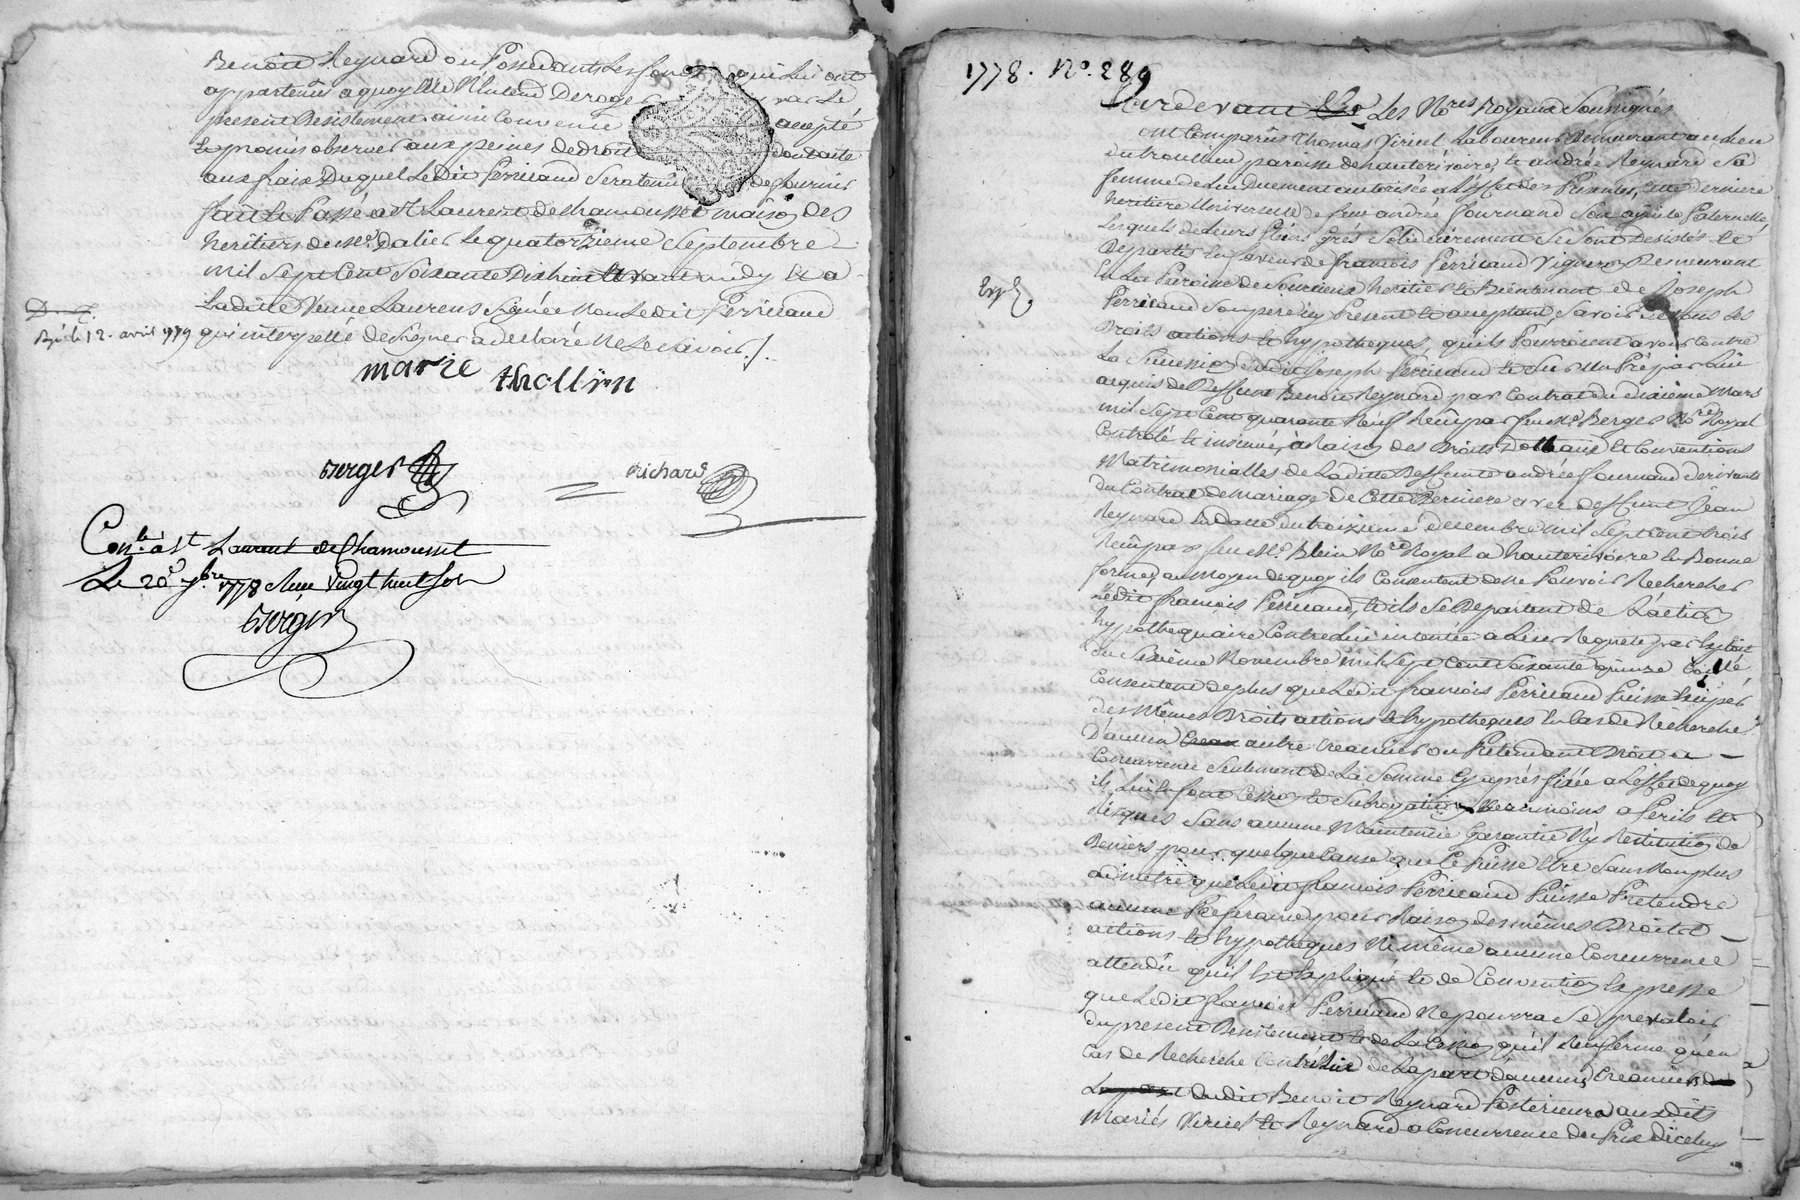 Benoit Reynard ou Possedants les fonds qui lui ont
appartenus a quoy Elle N'Entend Deroger par Le
present Desistement ainsi Convenu accepté
Et promis observer aux peines de droit
aux frais Duquel Ledit Perricaud Sera tenu de fournir
fait Et Passé a St Laurent de Chamousset maison des
heritiers de Me Dalier Le quatorzieme Septembre
mil Sept Cent Soixante Dix huit avant midy Et a
Laditte Veuve Laurens Signée Non Ledit Perricaud
Exp. le 12. avril 1779 qui interpellé de Signer a declaré Ne Le Savoir ./.
marie thollin
Berger
Richard
Conlé à St Laurent de Chamousset
Le 20e 7bre 1778 Reçu Vingt huit Sols
Berger
1778. No. 289
Pardevant Les Nores Royaux Soussignés
ont Comparûs Thomas Viricel Laboureur Demeurant au Lieu
du paroisse de hauterivoire, Et andrée Reynard Sa
femme de Lui Duement autorisée a L'effet des Presentes, Cette Derniere
heritiere Universelle de feue andrée fournand Son ayeule Paternelle,
Lesquels de Leurs pleins Grés Solidairement Se Sont Desistés Et
Departis En faveur de francois Perricaud Vigneron Demeurant
En La Paroisse de Sourcieux heritier Et Bientenant de Joseph
Perricaud Son pere icy Present Et acceptant, Savoir de tous Les
Droits actions Et hypotheques, qu'ils Pourroient avoir Contre
La Succession dudit Joseph Perricaud Et Sur Un Pré par Lui
acquis de Deffunt Benoit Reynard par Contrat du dixieme Mars
mil Sept Cent quarante Neuf Reçu par feu Me Berger Nore Royal
Controlé Et insinué, a Raison des Droits Dotaux Et Conventions
Matrimonialles de Laditte Deffunte andrée fournand derivants
du Contrat de mariage de Cette Derniere avec deffunt Jean
Reynard En datte du troizieme decembre mil Sept Cent trois
Reçu par feu Me Blein Nore Royal a hauterivoire En Bonne
forme, au moyen de quoy ils Consentent de Ne Pouvoir Rechercher
Ledit francois Perricaud, Et ils Se Departent de L'action
hypothequaire Contre Lui intentée a Leur Requete par Exploit
du Sixieme Novembre mil Sept Cent Soixante quinze
Consentent de plus que Ledit francois Perricaud Puisse User
des Mêmes Droits actions Et hypotheques En Cas de Recherche
D'aucun autre Creancier ou Pretendant Droit a
Concurrence Seulement de La Somme Cy après fixée a L'effet de quoy
ils Lui En font Cession Et Subrogation Neanmoins a Perils Et
Risques Sans aucune Maintenüe Garantie Ny Restitution de
Deniers pour quelque Cause que Ce Puisse Etre Sans Non plus
admettre que Ledit francois Perricaud Puisse Pretendre
aucune Preference pour Raison des mêmes Droits
actions Et hypotheques Ni même aucune Concurrence
attendû qu'il Est Expliqué Et de Convention Expresse
que Ledit francois Perricaud Ne pourra Se prevaloir
du present Desistement Et de La Cession qu'il Renferme qu'en
Cas de Recherche Contre Lui de La part d'aucuns Creanciers
dudit Benoit Reynard Posterieurs auxdits
Mariés Viricel Et Reynard a Concurrence du Prix d'icelui